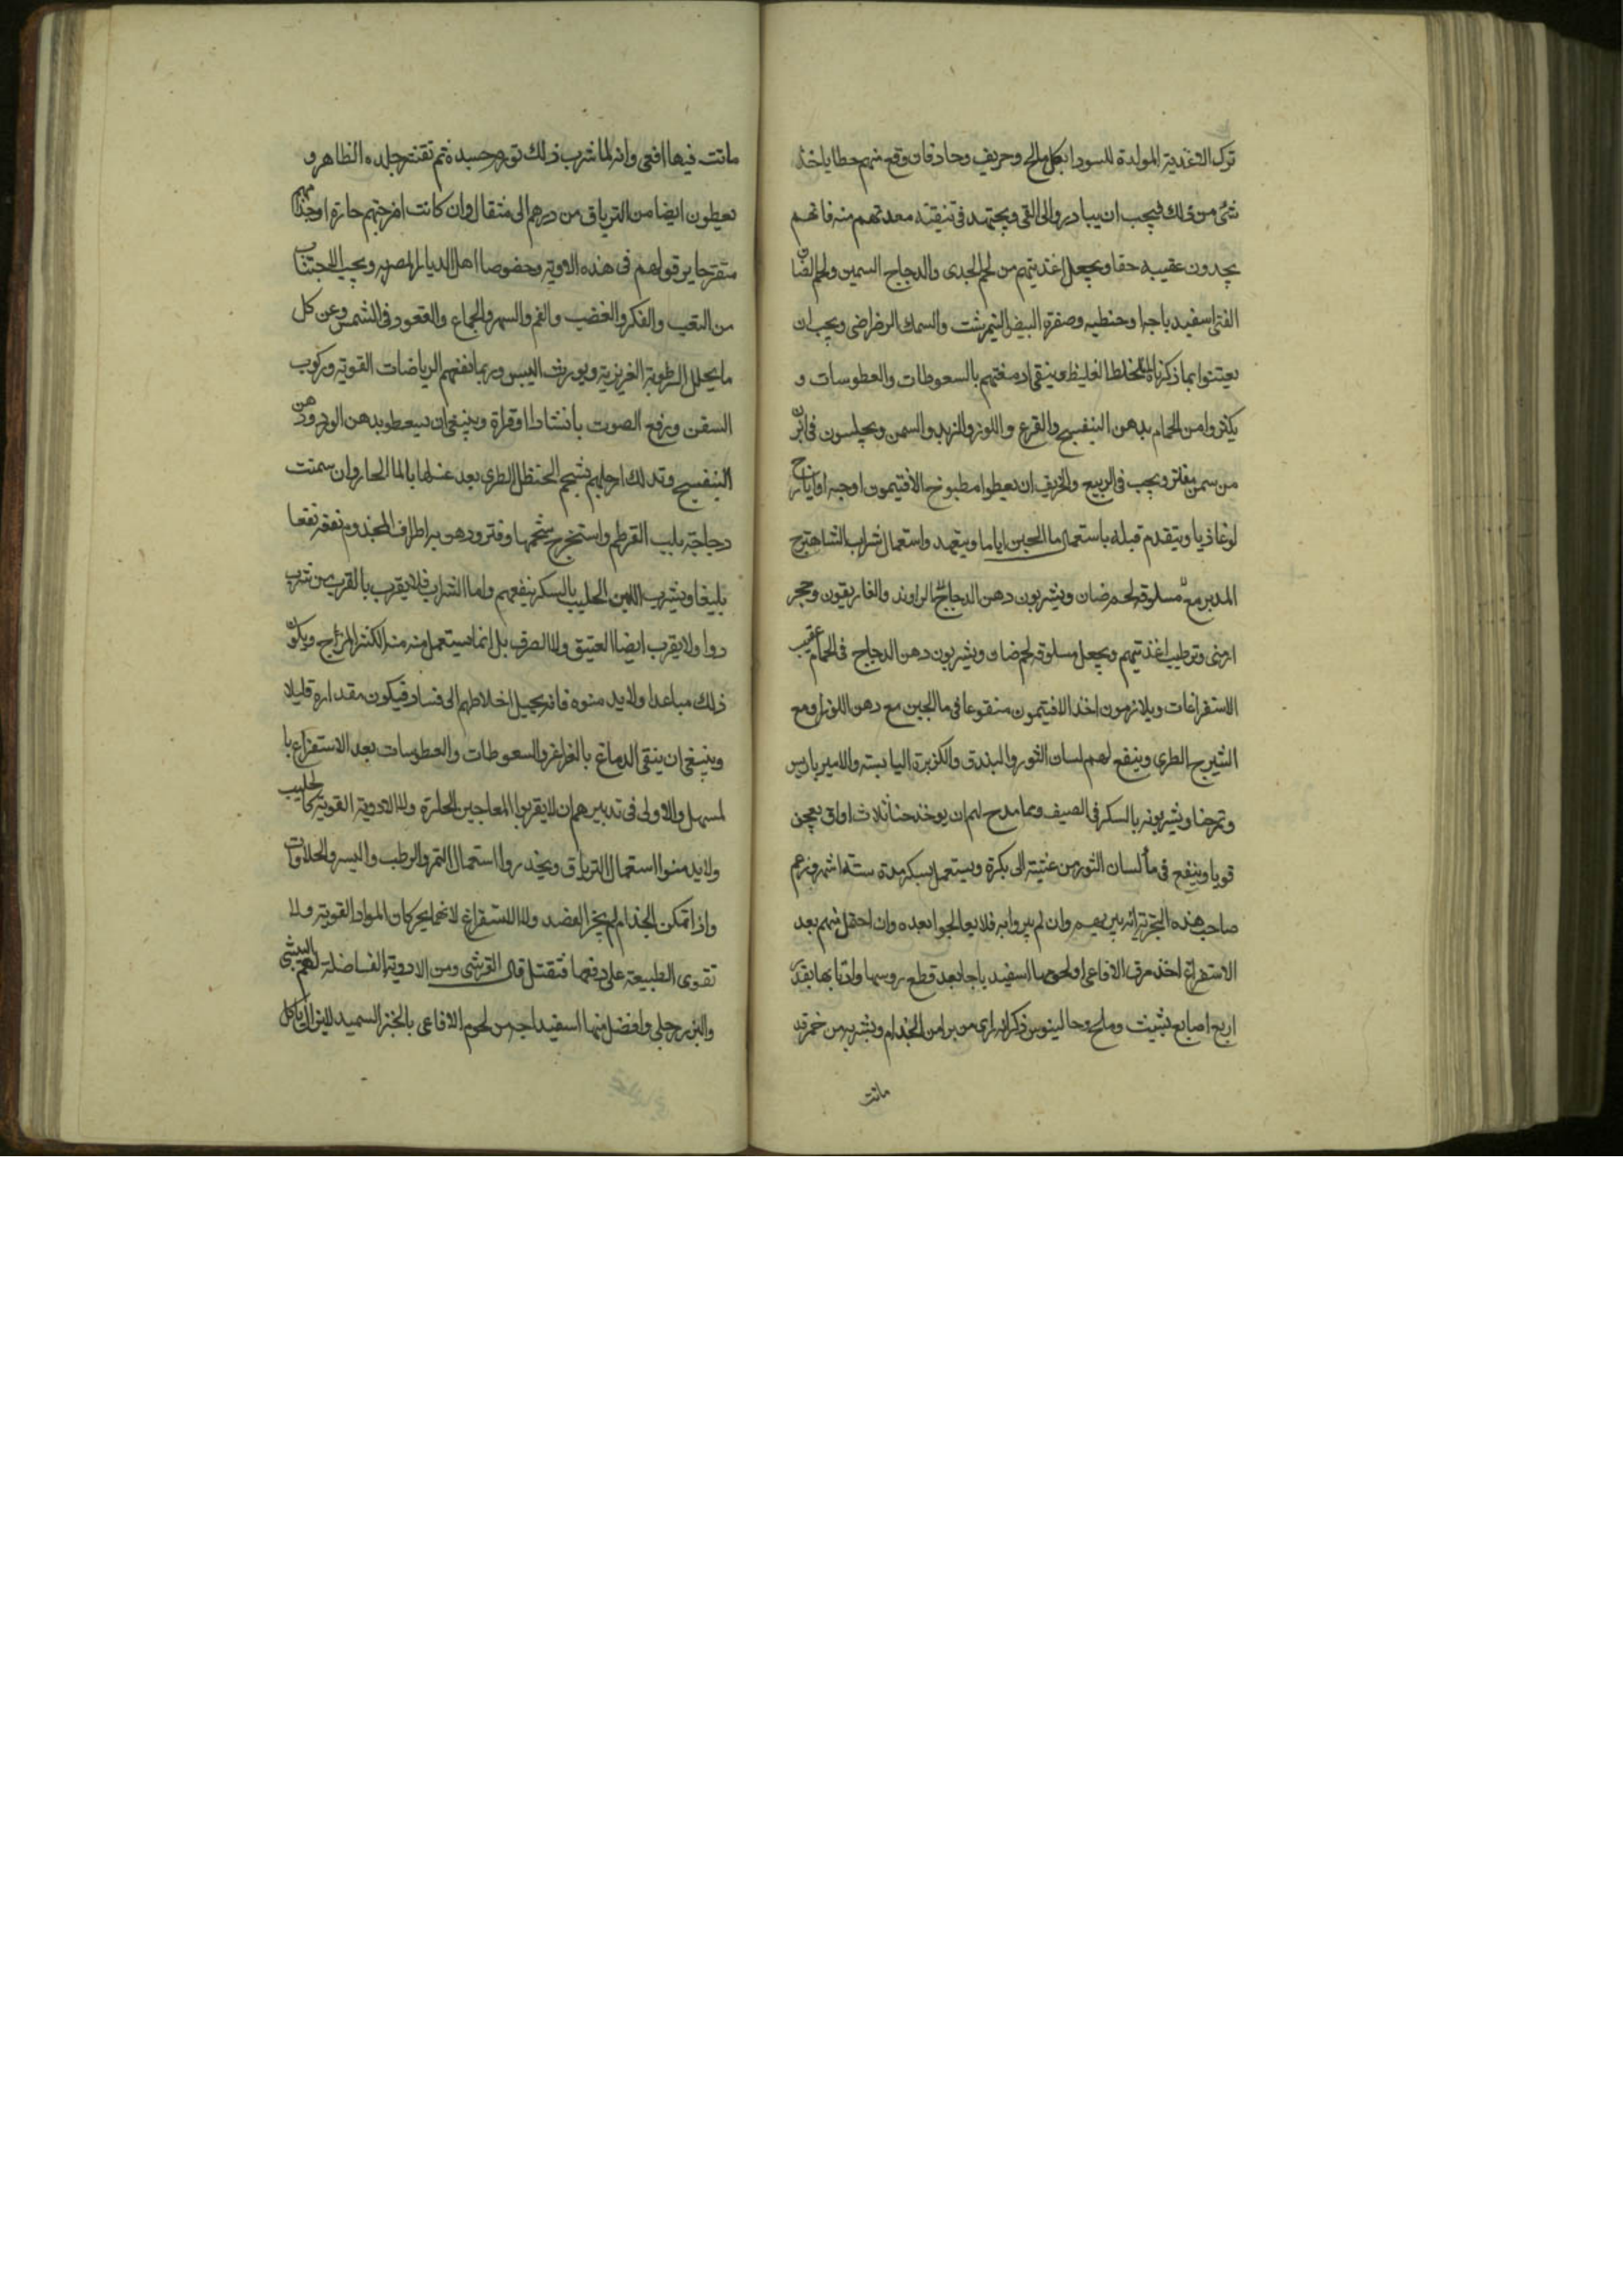 ترك الاغذية المولدة للسودا بكل مالح وحريف وحاد فان وقع منهم خطا ياخذ
شئ من ذلك فيجب ان يبادروا الى القى ويجتهد فى تنيقته معدتهم منه فانهم
يجدون عقيبه حقا ويجعل اغذيتهم من لحم الجدى والدجاج السمين ولحم الضان
الفتى اسفيدباجا وحنطيه وصفرة البيض النيمرشت والسمك الرضراضى ويجب ان
يعتنوا بما ذكرناه الخلط الغليظ وينقى ادمغتهم بالسعوطات والعطوسات و
يكثروا من الحمام بدهن البنفسج والقرع واللوز والزبد والسمن ويجلسون فى ابزن
من سمن مفلتر ويجب فى الربيع والخريف ان يعطوا مطبوخ الافتيمون اوحبه او ايارج
لوغاذيا ويتقدم قبله باستعمال ما الجبن اياما ويتعهد واستعمال شراب الشاهترج
المدبر مع مسلوقه لحم ضان ويشربون دهن الدجاج الراوند والغاريقون وحجر
ارمنى وترطيب اغذيتهم ويجعل مسلوقه لحم ضان ويشربون دهن الدجاج فى الحمام عقيب
الاستفراغات ويلازمون اخذ الافتيمون منقوعا فى ما الجبن مع دهن اللوز او مع
الشيرج الطرى وينفع لهم لسان الثور والبندق والكزبرة اليابسته والامير باريس
وتمرضا ويشربونه بالسكر فى الصيف ومما مدح لهم ان يوخذ حنا ثلاث اواقى يعجن
قويا وينفع فى ما لسان الثور من عشيته الى بكرة ويستعمل بسكر مدة ستة اشهر وزعم
صاحب هذه التجربة انه يبريهم وان لم يبروا به فلا يعالجوا بعده وان احتمل منهم بعد
الاستفراغ اخذ مرق الافاعى او لحومها اسفيد باجا بعد قطع روسها واذنابها بقدر
اربع اصابع بشبت وملح وجالينوس ذكر انه راى من برا من الجذام وبشربه من خمر قد
ماتت
ماتت فيها افعى وانه لما شرب ذلك تورم جسده ثم تفنت جلده الظاهر و
يعطون ايضا من الترياق من درهم الى مثقال وان كانت امزجتهم حارة او جذامهم
متقرحا يوقولهم فى هذه الادوية وخصوصا اهل الديار المصريه ويجب الاجتناب
من التعب والفكر والغضب والغم والسهر والجماع والقعود فى الشمس وعن كل
ما يحلل الرطوبة الغريزية ويورث اليبس وربما نفعهم الرياضات القوية وركوب
السفن ورفع الصوت بانشاد او قراة وينبغى ان يسعطوا بدهن الورد ودهن
البنفسج وتدلك ارجلهم بشحم الحنظل الطرى بعد غسلها بالما الحار وان سمنت
دجاجة بلبب القرطم واستخرج شحمها وفتر ودهن به اطراف المجذوم نفعه نفعا
بليغا وبشرب اللبن الحليب بالسكر ينفعهم واما الشراب فلا يقرب بالقرب من شرب
دوا ولا يقرب ايضا العتيق ولا الصرف بل انما يستعمل منه منه الكثر المزاج ويكون
ذلك مباعدا ولا يدمنوه فانه يحيل اخلاطهم الى فساد فيكون مقداره قليلا
وينبغى ان ينقى الدماغ بالغراغر والسعوطات والعطوسات بعد الاستفراغ با
لمسهل والاولى فى تدبيرهم ان لا يقربوا المعاجين الحارة ولا الادوية القوية كالحليب
ولا يدمنوا استعمال الترياق ويحذروا استعمال التمر والرطب والبسر والحلاوات
واذا تمكن الجذام لم يجز الفصد ولا الاستفراغ لانهما يحركان المواد القوية ولا
تقوى الطبيعة على دفعها فتقتل قال القرشى ومن الادوية الفاضلة لهم البيشى
والبزرجلى وافضل منها اسفيداجه من لحوم الافاعى بالخبز السميد للين الى ياكل